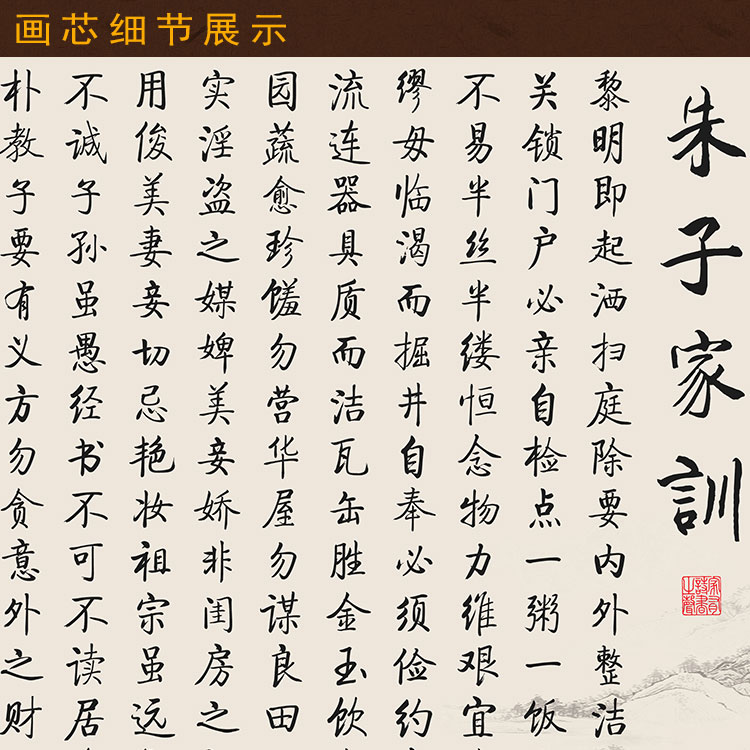 画芯细节展示
朱子家訓
黎明即起洒扫庭除要内外整洁
关锁门户必亲自检点一粥一饭
不易半丝半缕恒念物力维艰宜
缪毋临渴而掘井自奉必须俭约
流连器具质而洁瓦缶胜金玉饮
园蔬愈珍馐勿营华屋勿谋良田
实淫盗之媒婢美妾娇非闺房之
用俊美妻妾切忌艳妆祖宗虽远
不诚子孙虽愚经书不可不读居
朴教子要有义方勿贪意外之财